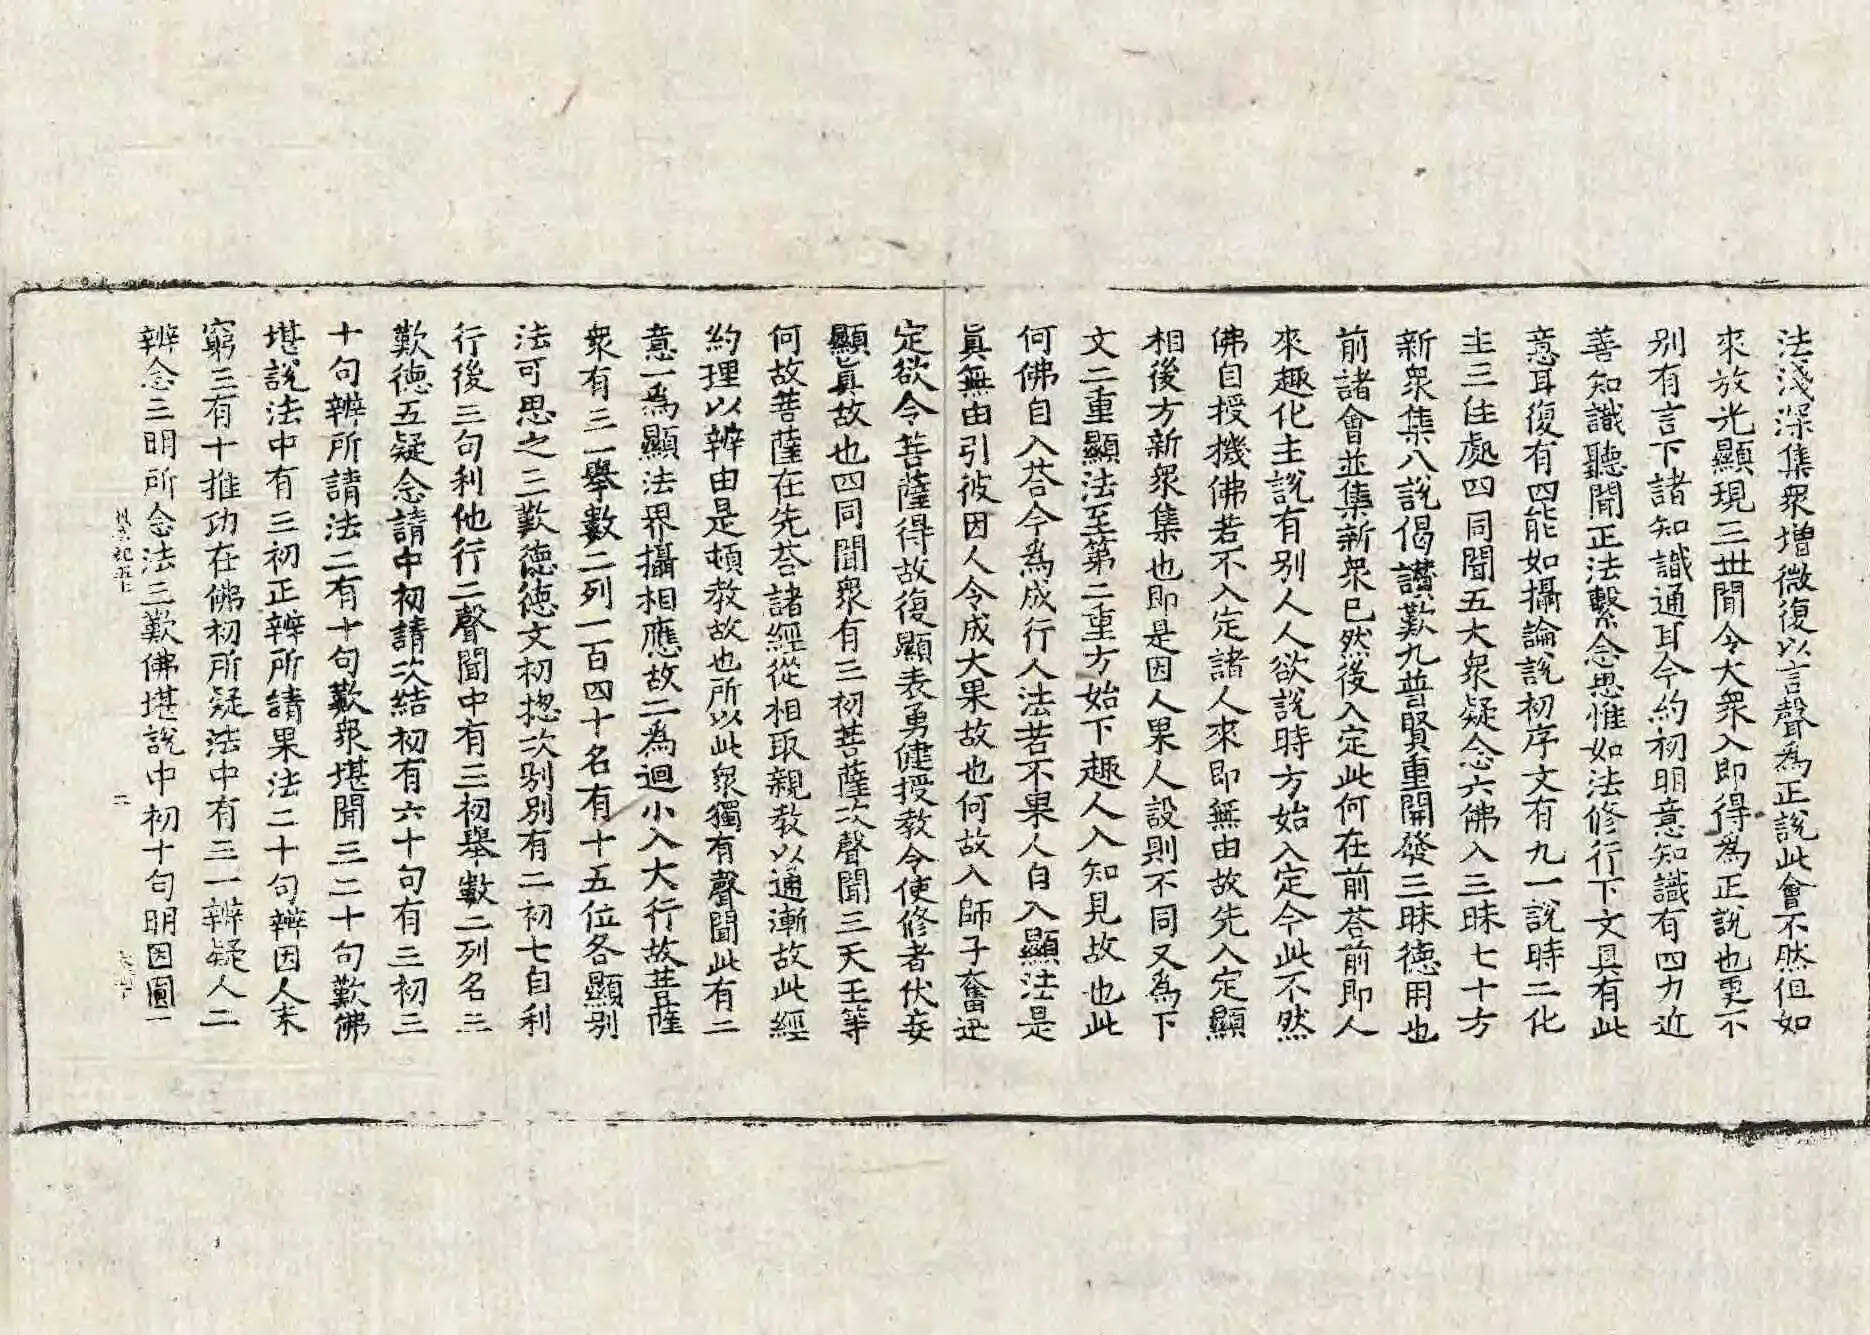 法淺深集衆增微復以言聲為正說此會不然但如
來放光顯現三世間令大衆入即得為正說也更不
别有言下諸知識通耳今約初明意知識有四力近
善知識聽聞正法繫念思惟如法修行下文具有此
意耳復有四能如攝論說初序文有九一說時二化
主三住處四同聞五大衆疑念六佛入三昧七十方
新衆集八說偈讃歎九普賢重開發三昧德用也
前諸會並集新衆已然後入定此何在前荅前即人
來趣化主說有别人人欲說時方始入定今此不然
佛自授機佛若不入定諸人來即無由故先入定顯
相後方新衆集也即是因人果人設則不同又為下
文二重顯法至第二重方始下趣人入知見故也此
何佛自入荅今為成行人法若不果人自入顯法是
真無由引彼因人令成大果故也何故入師子奮迅
定欲令菩薩得故復顯表勇健授教令使修者伏妄
顯真故也四同聞衆有三初菩薩次聲聞三天王等
何故菩薩在先荅諸經從相取親教以通漸故此經
約理以辨由是頓教故也所以此衆獨有聲聞此有二
意一為顯法界攝相應故二為迴小入大行故菩薩
衆有三一舉數二列一百四十名有十五位各顯别
法可思之三歎德德文初揔次别別有二初七自利
行後三句利他行二聲聞中有三初舉數二列名三
歎德五疑念請中初請次結初有六十句有三初三
十句辨所請法二有十句歎衆堪聞三二十句歎佛
堪說法中有三初正辨所請果法二十句辨因人末
窮三有十推功在佛初所疑法中有三一辨疑人二
辨念三明所念法三歎佛堪說中初十句明因圓一
二